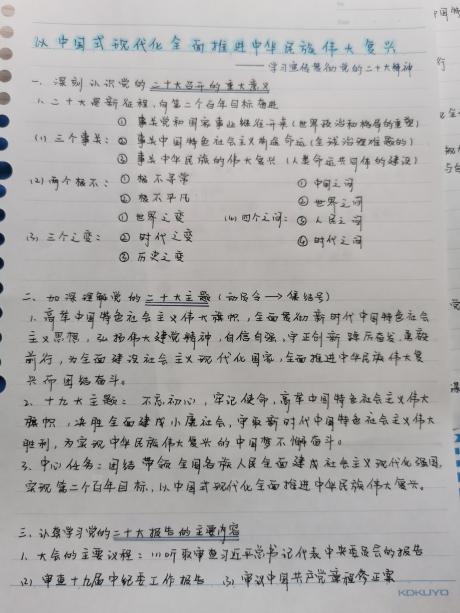 以中国式现代化全面推进中华民族伟大复兴
——学习宣传贯彻党的二十大精神
一、深刻认识党的二十大召开的重大意义
1.二十大是新征程,向第二个百年目标奋进
① 事关党和国家事业继往开来(世界政治和格局的重塑)
(1) 三个事关: ② 事关中国特色社会主义前途命运(全球治理难题的)
③ 事关中华民族的伟大复兴(人类命运共同体的建设)
(2) 两个极不: ① 极不寻常 ① 中国之问
② 极不平凡 ② 世界之问
① 世界之变 (4) 四个之问: ③ 人民之问
(3) 三个之变: ② 时代之变 ④ 时代之问
③ 历史之变
二、加深理解党的二十大主题(动员令→集结号)
1.高举中国特色社会主义伟大旗帜,全面贯彻新时代中国特色社会
主义思想,弘扬伟大建党精神,自信自强、守正创新 踔厉奋发、勇毅
前行,为全面建设社会主义现代化国家,全面推进中华民族伟大复
兴而团结奋斗。
2、十九大主题:不忘初心,牢记使命,高举中国特色社会主义伟大
旗帜,决胜全面建成小康社会,夺取新时代中国特色社会主义伟大
胜利,为实现中华民族伟大复兴的中国梦不懈奋斗。
3、中心任务:团结带领全国各族人民全面建成社会主义现代化强国,
实现第二个百年目标,以中国式现代化全面推进中华民族伟大复兴。
三、认真学习党的二十大报告的主要内容
1、大会的主要议程:(1)听取审查习近平总书记代表中央委员会的报告
(2) 审查十九届中纪委工作报告 (3) 审议中国共产党章程修正案
KOKUYO